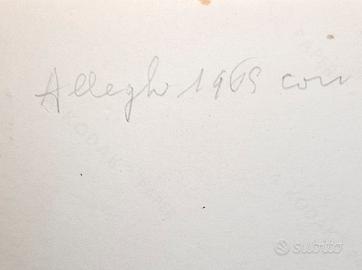 Alleghe 1965 con
subito